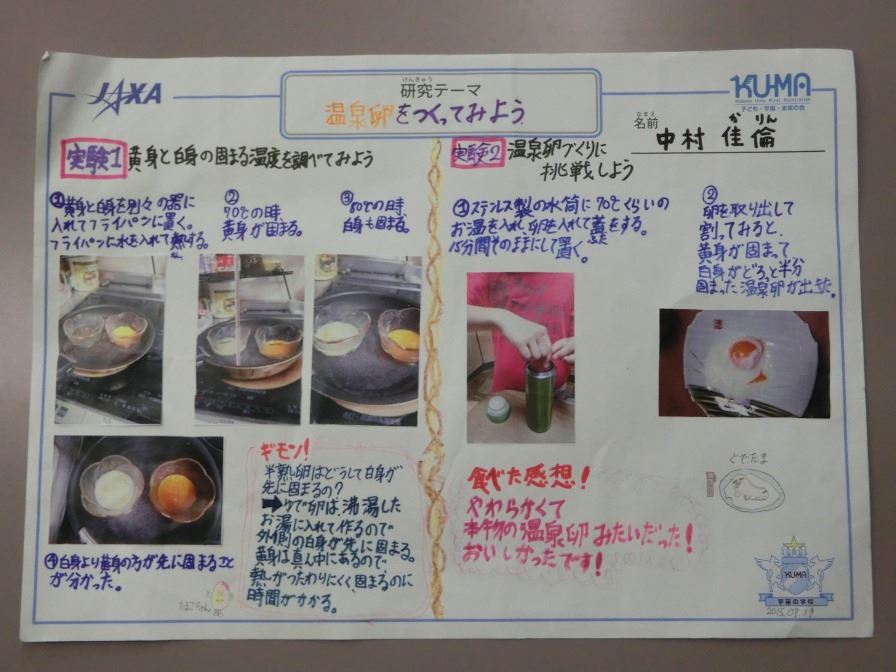 JAXA
けんきゅう
研究テーマ
温泉卵をつくってみよう
KU-MA
子ども・宇宙・未来の会
なまえ
名前
かりん
中村 佳倫
実験1 黄身と白身の固まる温度を調べてみよう
①黄身と白身を別々の器に
入れてフライパンに置く。
フライパンに水を入れて熱する。
②
70℃の時、
黄身が固まる。
③
80℃の時、
白身も固まる。
④白身より黄身の方が先に固まること
が分かった。
たまごちゃん
ギモン!
半熟卵はどうして白身が
先に固まるの?
➡ゆで卵は沸湯した
お湯に入れて作るので
外側の白身が先に固まる。
黄身は真ん中にあるので、
熱がつたわりにくく、固まるのに
時間がかかる。
実験2 温泉卵づくりに
挑戦しよう
①ステンレス製の水筒に70℃くらいの
お湯を入れ、卵を入れて蓋をする。
ふた
15分間そのままにして置く。
②
卵を取り出して
割ってみると、
黄身が固まって
白身がどろっと半分
固まった温泉卵が出来た。
食べた感想!
やわらかくて
本物の温泉卵みたいだった!
おいしかったです!
ぐでたま
KUMA
宇宙の学校
2015.09.19